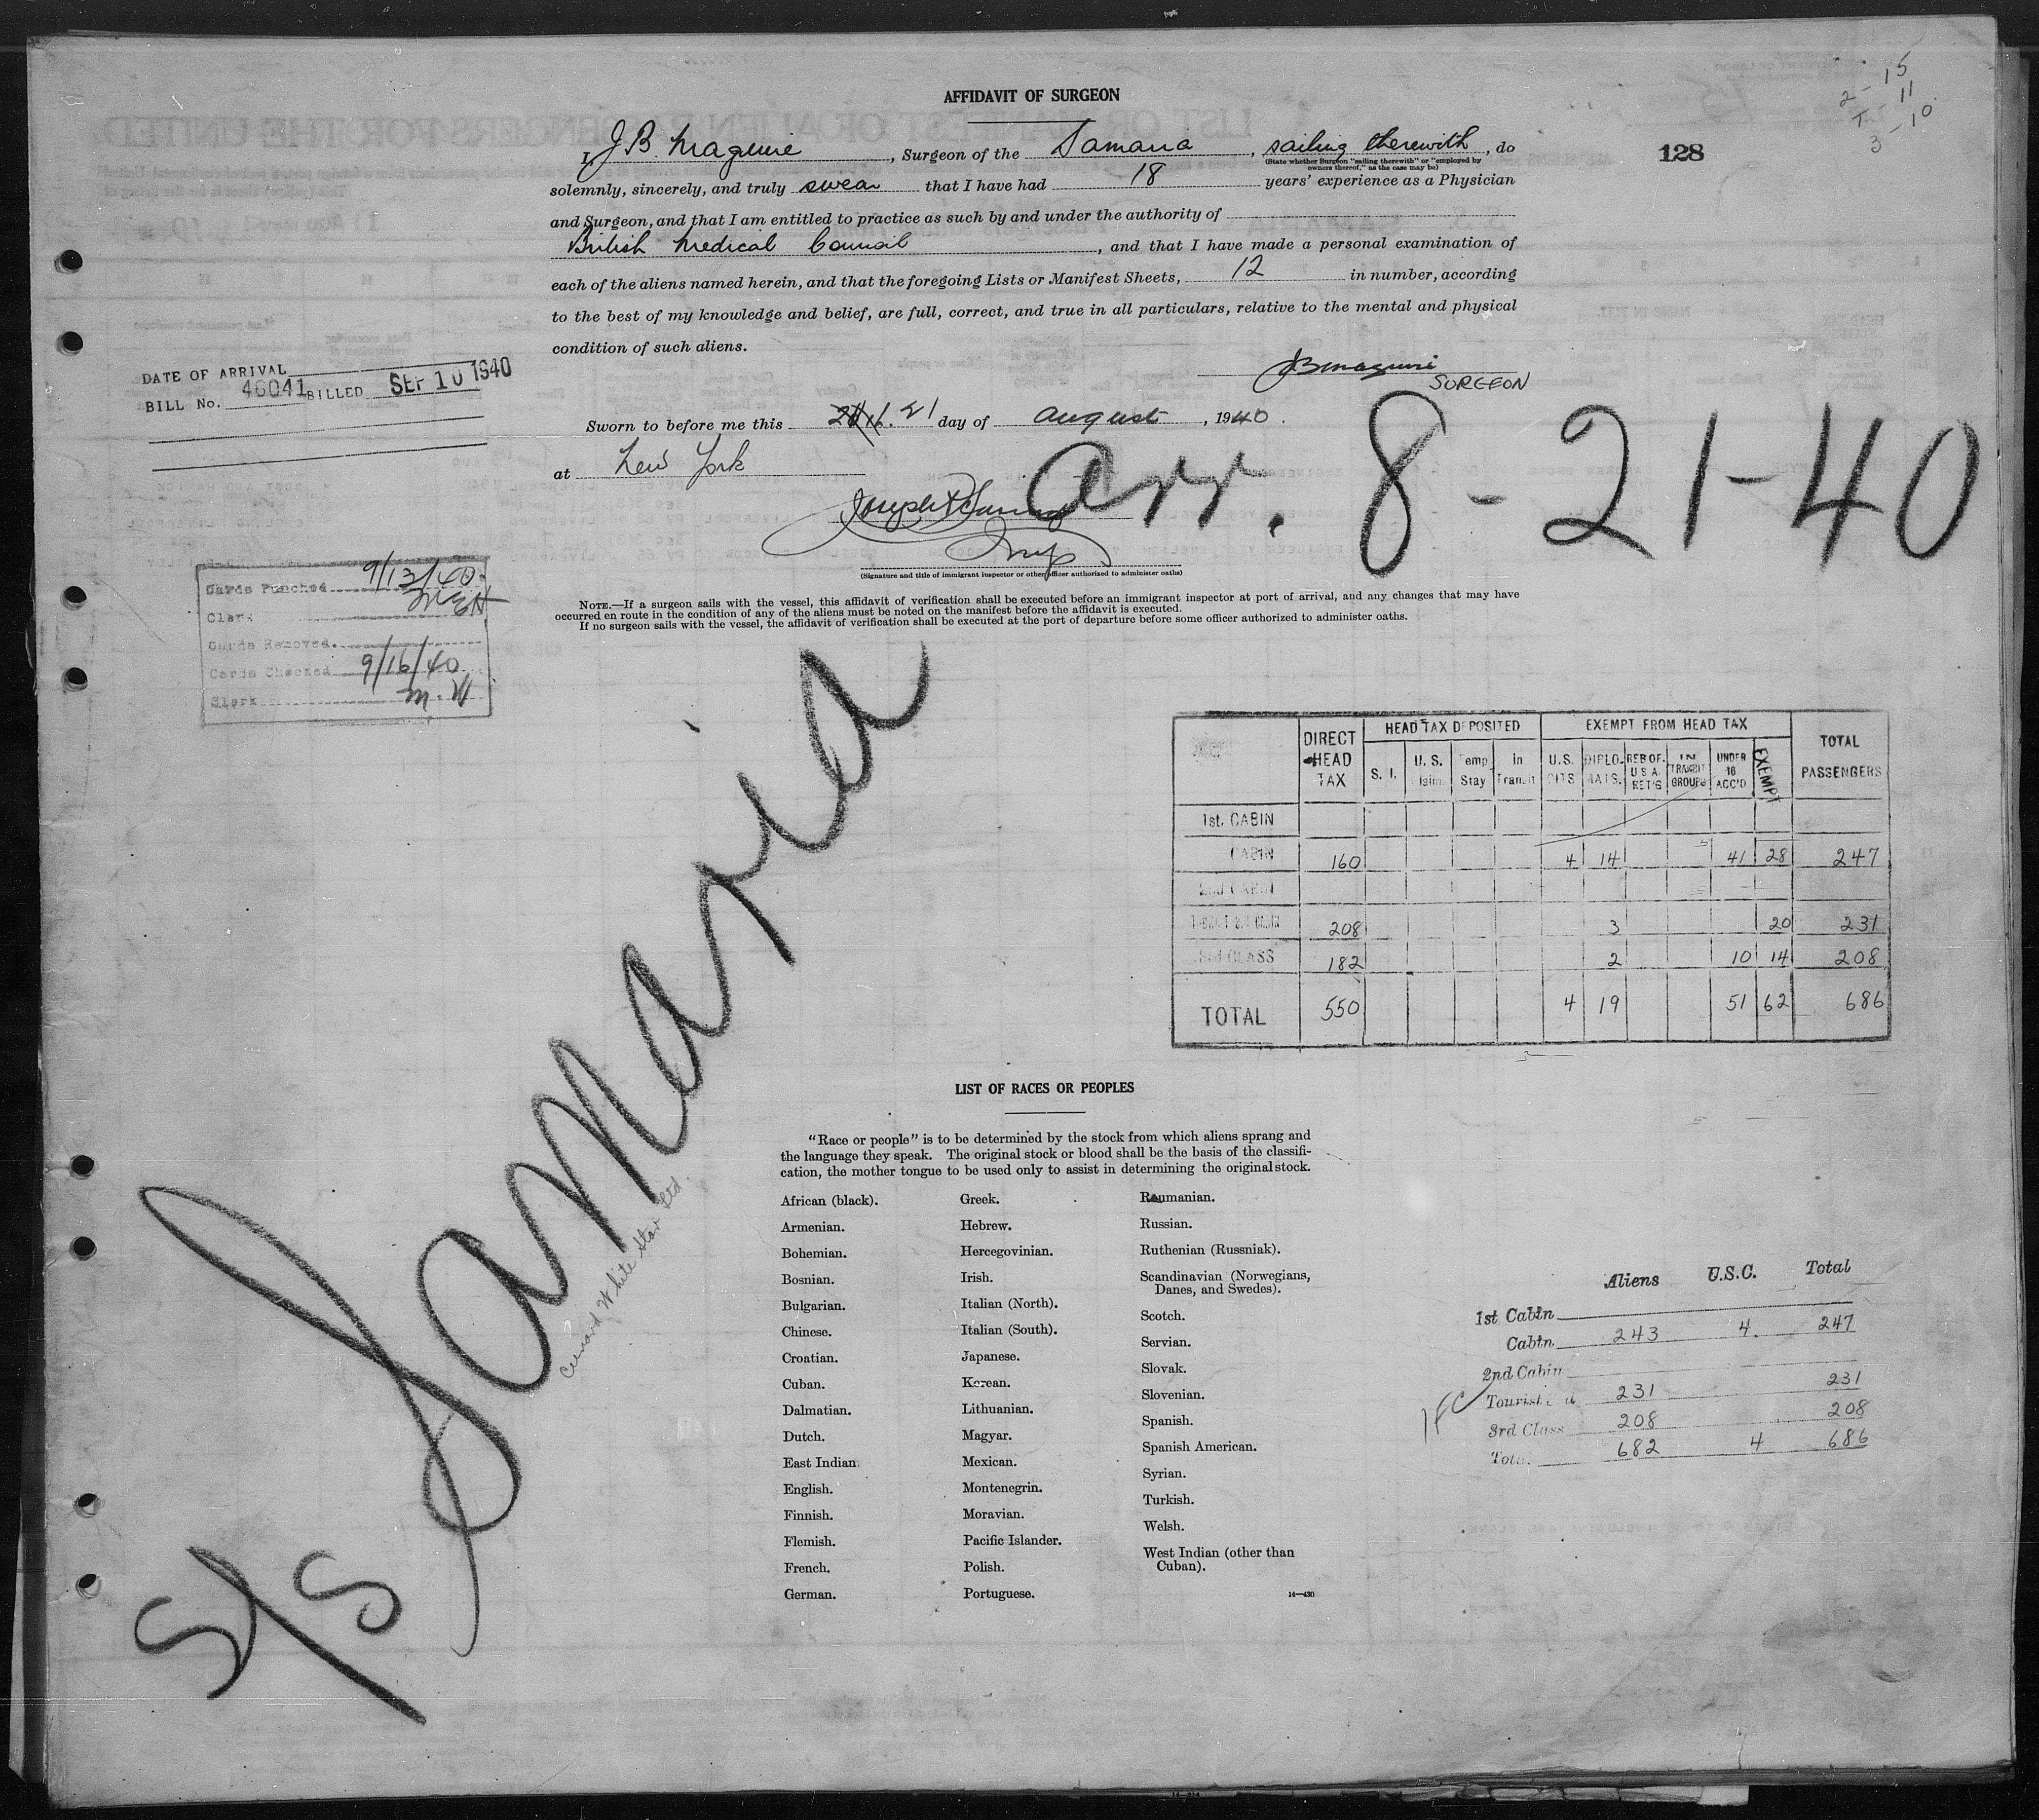 AFFIDAVIT OF SURGEON
2-15
T-11
3-10
128
I, J B Maguire, Surgeon of the Samaria, sailing therewith, do
(State whether Surgeon "sailing therewith" or "employed by
owners thereof," as the case may be)
solemnly, sincerely, and truly swear that I have had 18 years' experience as a Physician
and Surgeon, and that I am entitled to practice as such by and under the authority of
British Medical Council, and that I have made a personal examination of
each of the aliens named herein, and that the foregoing Lists or Manifest Sheets, 12 in number, according
to the best of my knowledge and belief, are full, correct, and true in all particulars, relative to the mental and physical
condition of such aliens.
JBMaguire
SURGEON
DATE OF ARRIVAL
BILL No. 46041 BILLED SEP 10 1940
Sworn to before me this 21 day of August, 1940.
at New York
Arr. 8-21-40
Joseph
Insp
(Signature and title of immigrant inspector or other officer authorized to administer oaths)
Cards Punched 9/13/40
Clerk MEH
Cards Removed
Cards Checked 9/16/40
Clerk M.W
NOTE.—If a surgeon sails with the vessel, this affidavit of verification shall be executed before an immigrant inspector at port of arrival, and any changes that may have
occurred en route in the condition of any of the aliens must be noted on the manifest before the affidavit is executed.
If no surgeon sails with the vessel, the affidavit of verification shall be executed at the port of departure before some officer authorized to administer oaths.
S/S Samaria
Cunard White Star Ltd.
DIRECT HEAD TAX HEAD TAX DEPOSITED EXEMPT FROM HEAD TAX TOTAL PASSENGERS
S. I. U. S. Claim. Temp Stay In Transit U.S. CITS DIPLO-MATS. RES OF. U S A. RET'G IN TRANSIT GROUPS UNDER 16 ACC'D EXEMPT
1st. CABIN
CABIN 160 4 14 41 28 247
2nd CABIN
208 3 20 231
3rd CLASS 182 2 10 14 208
TOTAL 550 4 19 51 62 686
LIST OF RACES OR PEOPLES
"Race or people" is to be determined by the stock from which aliens sprang and
the language they speak. The original stock or blood shall be the basis of the classifi-
cation, the mother tongue to be used only to assist in determining the original stock.
African (black).
Armenian.
Bohemian.
Bosnian.
Bulgarian.
Chinese.
Croatian.
Cuban.
Dalmatian.
Dutch.
East Indian.
English.
Finnish.
Flemish.
French.
German.
Greek.
Hebrew.
Hercegovinian.
Irish.
Italian (North).
Italian (South).
Japanese.
Korean.
Lithuanian.
Magyar.
Mexican.
Montenegrin.
Moravian.
Pacific Islander.
Polish.
Portuguese.
Roumanian.
Russian.
Ruthenian (Russniak).
Scandinavian (Norwegians,
Danes, and Swedes).
Scotch.
Servian.
Slovak.
Slovenian.
Spanish.
Spanish American.
Syrian.
Turkish.
Welsh.
West Indian (other than
Cuban).
14—430
Aliens U.S.C. Total
1st Cabin
Cabin 243 4 247
2nd Cabin
Tourist 231 231
3rd Class 208 208
Total 682 4 686